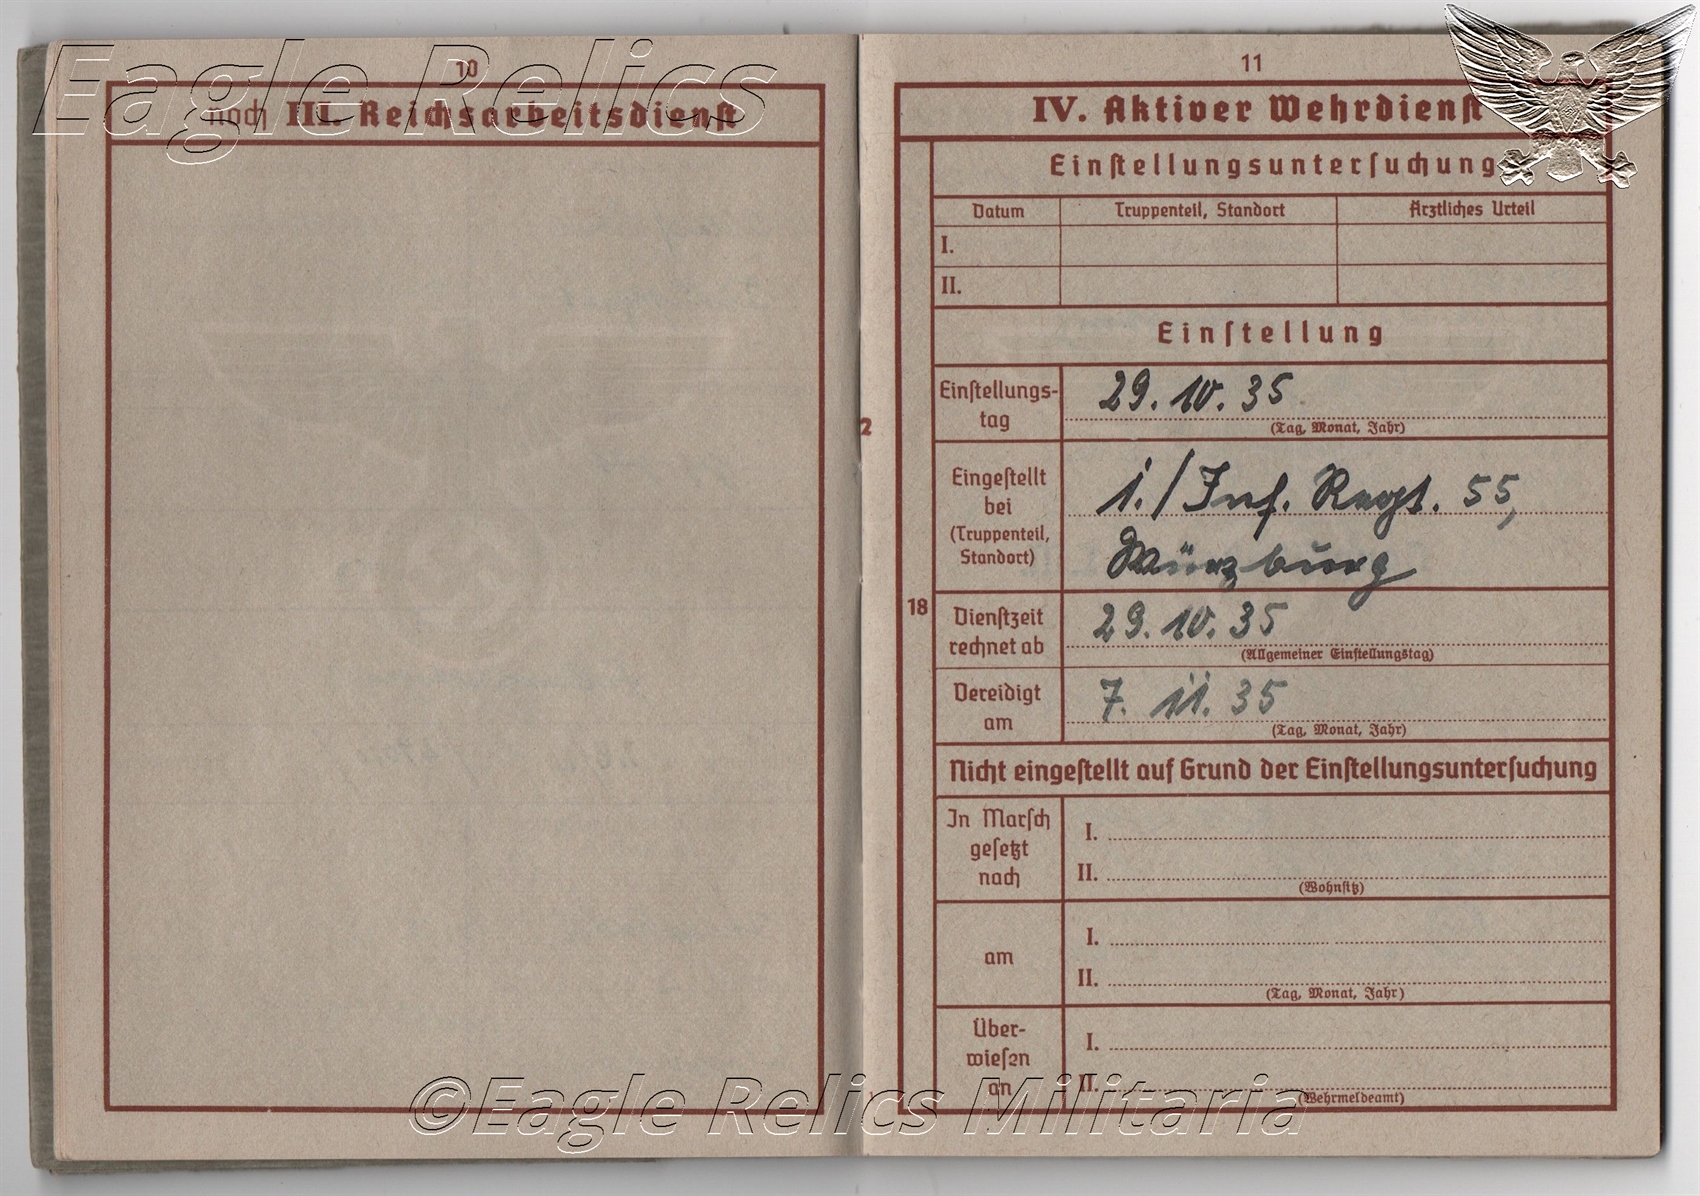 Eagle Relics
10
noch III. Reichsarbeitsdienst
11
IV. Aktiver Wehrdienst
Einstellungsuntersuchung
Datum Truppenteil, Standort Ärztliches Urteil
I.
II.
Einstellung
Einstellungs-
tag
29. 10. 35
(Tag, Monat, Jahr)
2
Eingestellt
bei
(Truppenteil,
Standort)
1./Inf. Regt. 55,
Würzburg
18
Dienstzeit
rechnet ab
29. 10. 35
(Allgemeiner Einstellungstag)
Vereidigt
am
7. 11. 35
(Tag, Monat, Jahr)
Nicht eingestellt auf Grund der Einstellungsuntersuchung
In Marsch
gesetzt
nach
I.
II.
(Wohnsitz)
am
I.
II.
(Tag, Monat, Jahr)
Über-
wiesen
an
I.
II.
(Wehrmeldeamt)
©Eagle Relics Militaria